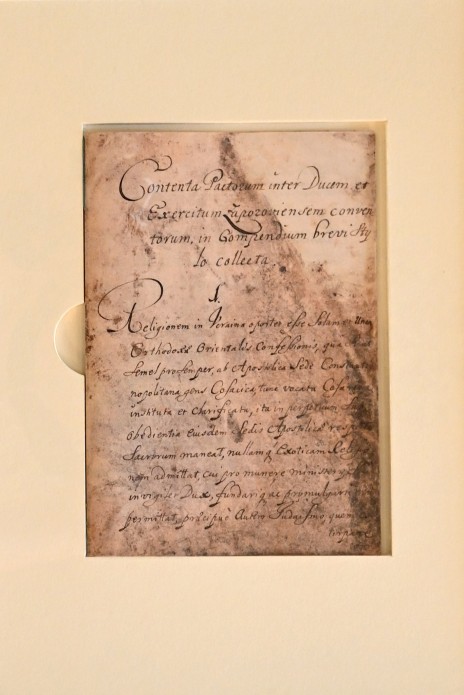 Contenta Pactorum inter Ducem et
Exercitum Zaporoviensem conven
torum, in Compendium brevi Sty
lo collecta.
1.
Religionem in Ucraina oportet esse Solam et Una
Orthodoxæ Orientalis Confessionis, qua
semel pro semper, ab Apostolica Sede Constanti
nopolitana, gens Cosacica, tunc vocata
instituta et clarificata, ita in perpetuum
obedientia Eiusdem Sedis Apostolicæ
Sacrorum maneat, nullamq Exoticam Reli
nem admittat, cui pro munere
invigilet Dux, fundariqz promulgari
permittat, præcipuè Autem Judaismo, quem